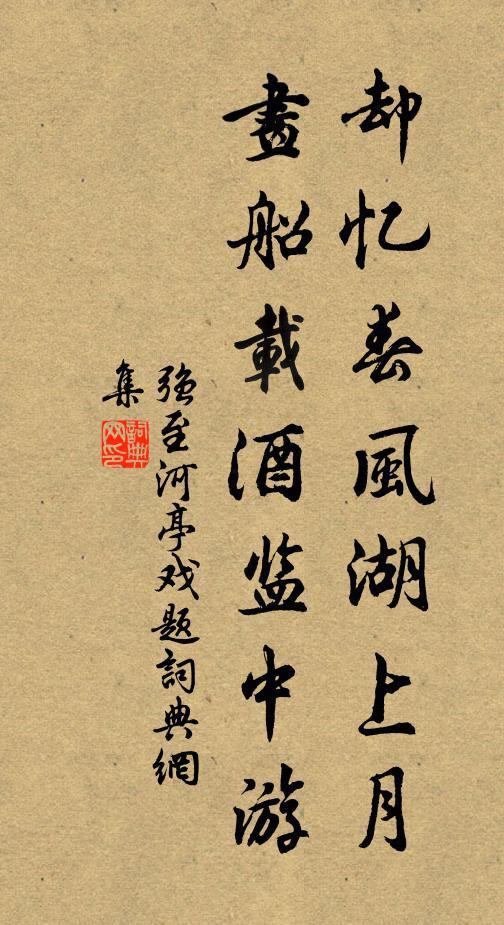 却忆春風湖上月
畫船載酒监中游
强至河亭戏题詞典網
集
詞典网印